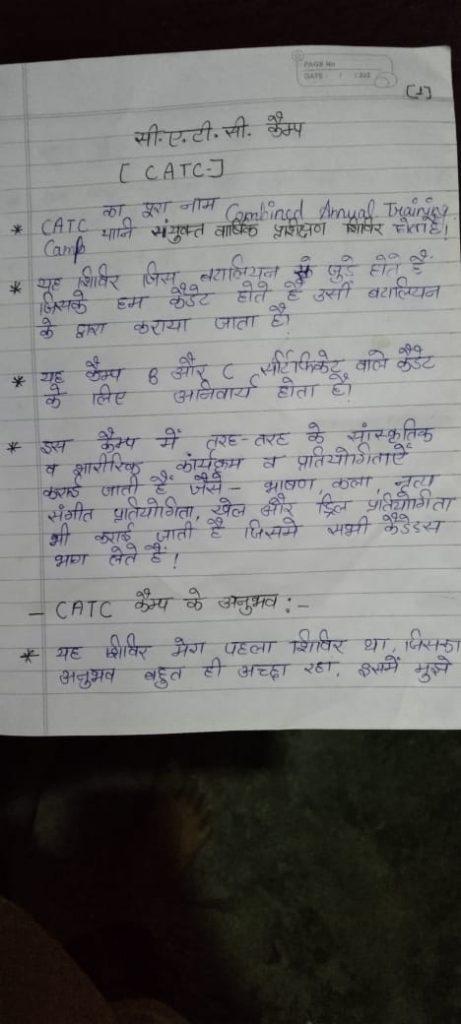 PAGE No
DATE / / 202
[1]
सी.ए.टी.सी. कैम्प
[CATC-]
* CATC का पूरा नाम Combined Annual Training
Camp यानि संयुक्त वार्षिक प्रशिक्षण शिविर होता है।
* यह शिविर जिस बटालियन से जुडे होते हैं
जिसके हम कैडेट होते हैं उसी बटालियन
के द्वारा कराया जाता है।
* यह कैम्प B और C सर्टिफिकेट वाले कैडेट
के लिए अनिवार्य होता है।
* इस कैम्प में तरह-तरह के सांस्कृतिक
व शारीरिक कार्यक्रम व प्रतियोगिताएँ
कराई जाती हैं जैसे - भाषण, कला, नृत्य
संगीत प्रतियोगिता, खेल और ड्रिल प्रतियोगिता
भी कराई जाती है जिसमे सभी कैडेडस
भाग लेते हैं!
- CATC कैम्प के अनुभव :-
* यह शिविर मेरा पहला शिविर था, जिसका
अनुभव बहुत ही अच्छा रहा, इसमें मुझे